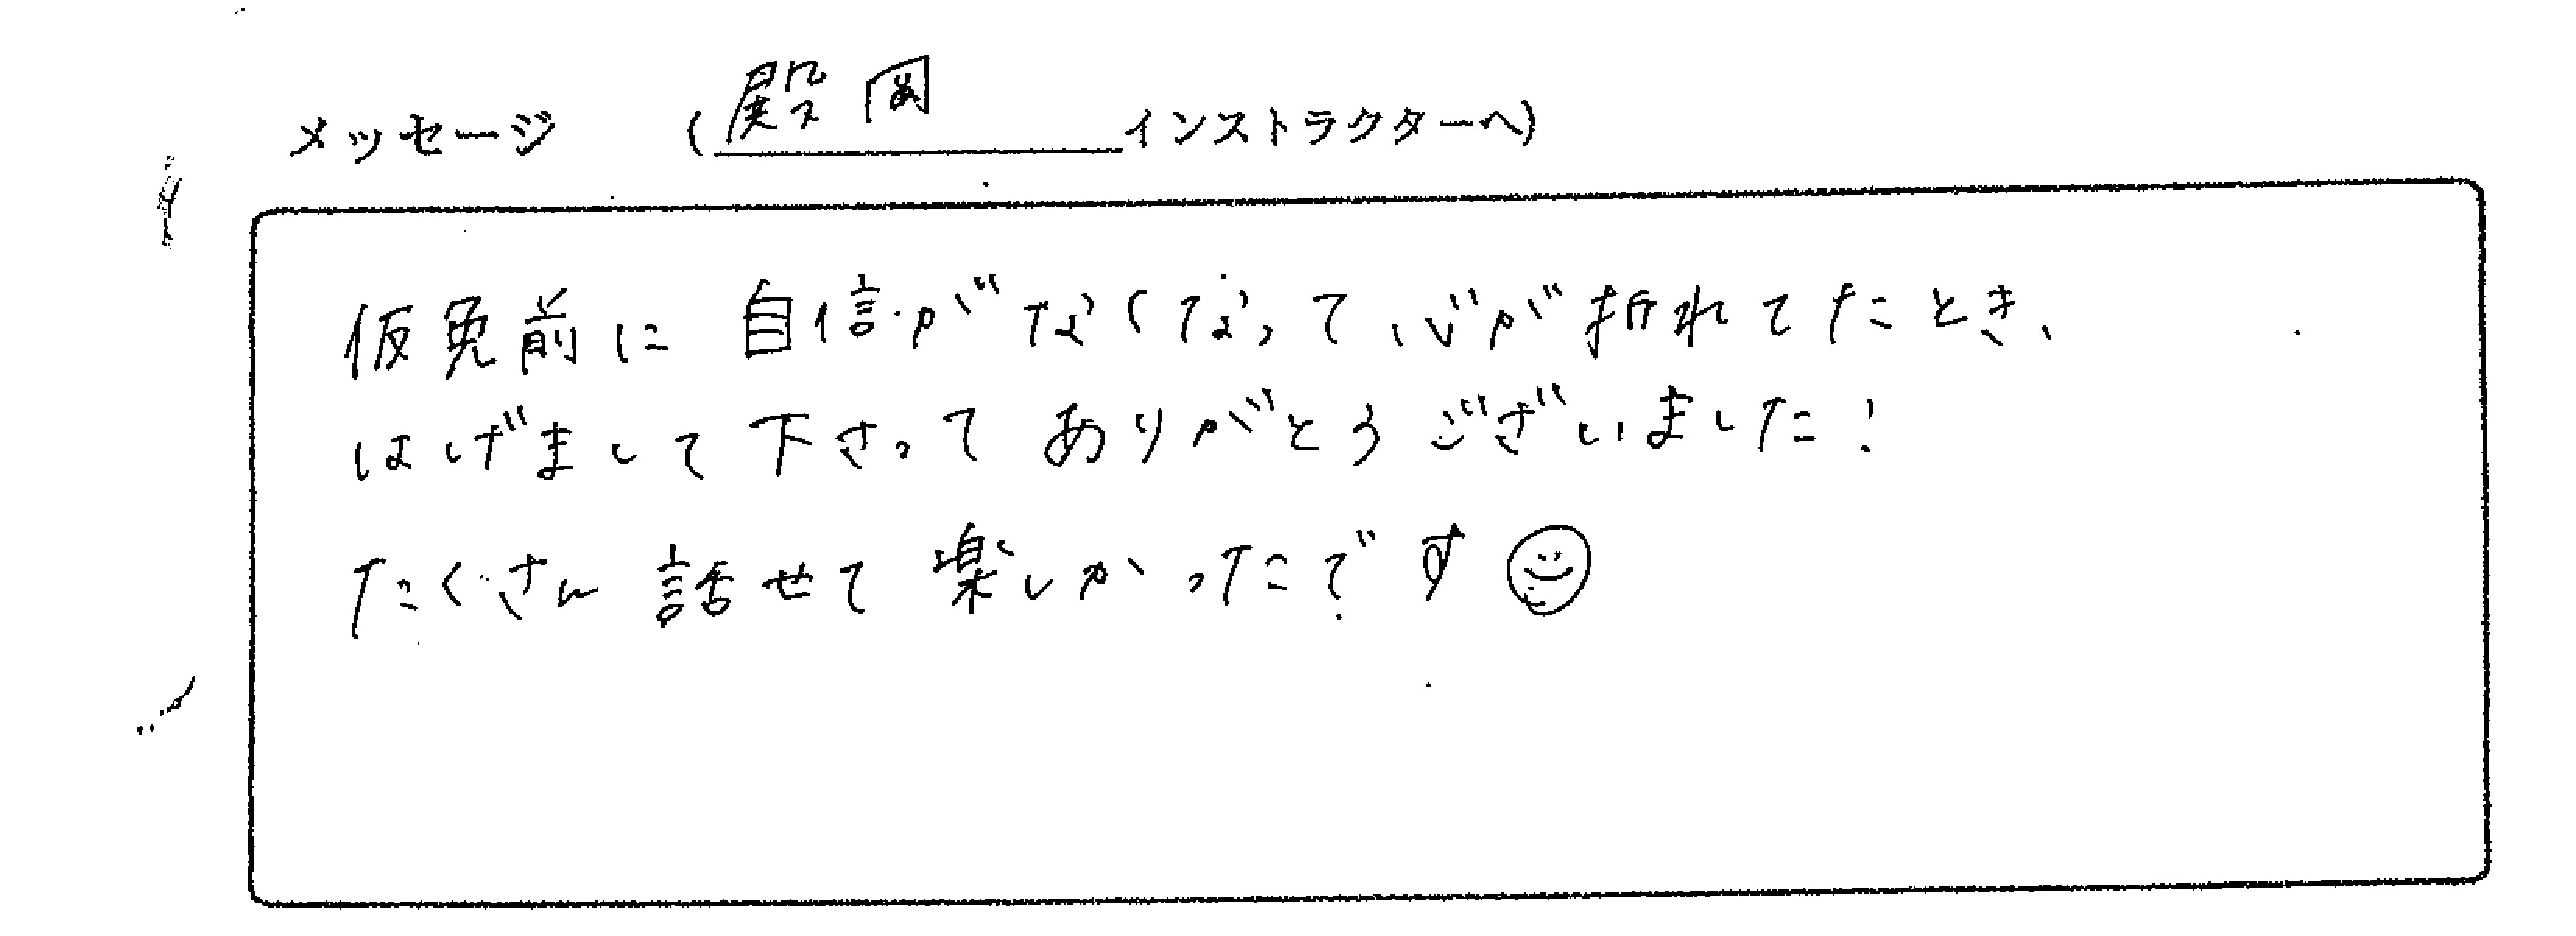 メッセージ (殿岡インストラクターへ)
仮免前に自信がなくなって心が折れてたとき、
はげまして下さってありがとうございました!
たくさん話せて楽しかったです